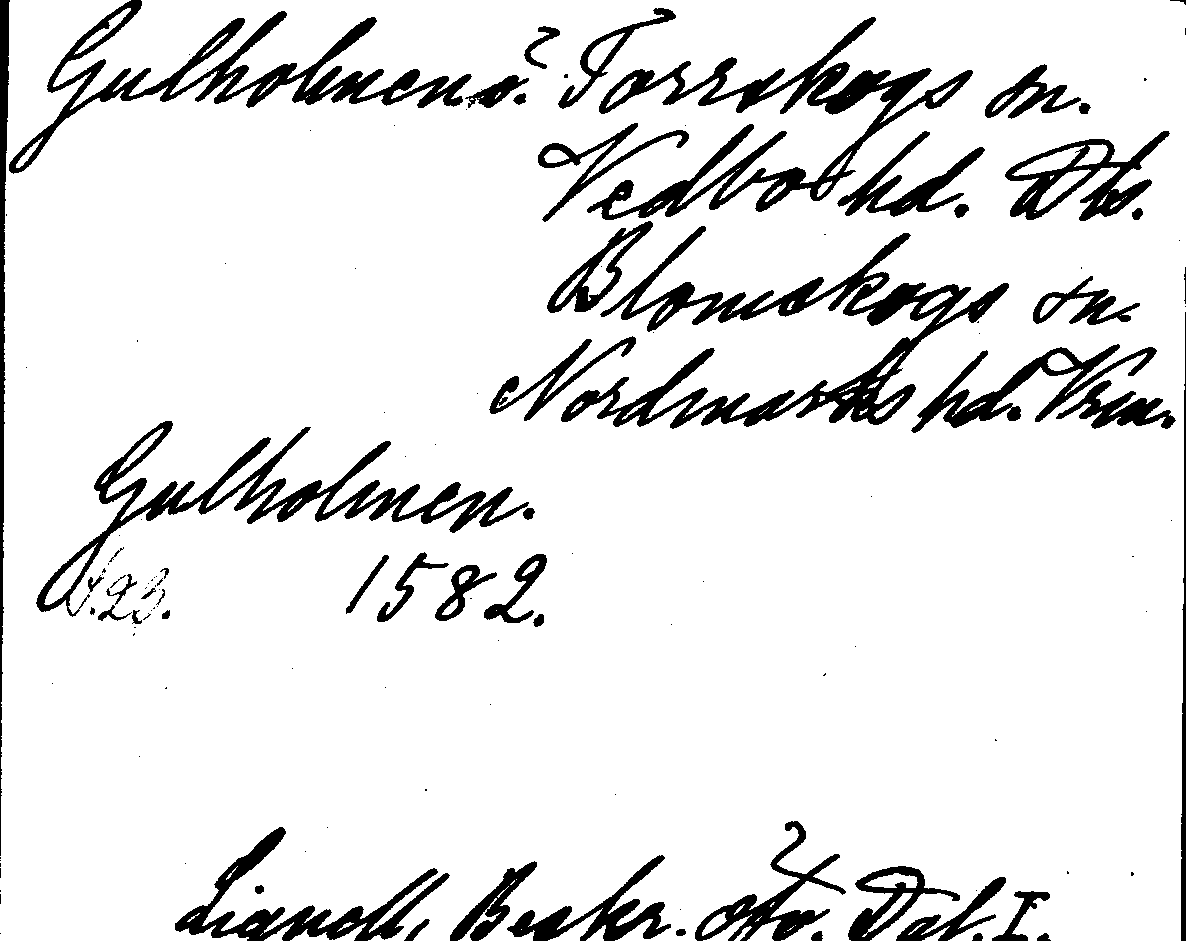 Gulholmen s.? Torrskogs sn.
Vedbo hd. Dls.
Blomskogs sn.
Nordmarks hd. Vrm.
Gulholmen.
S.23. 1582.
Lignell, Beskr. Dal. I.